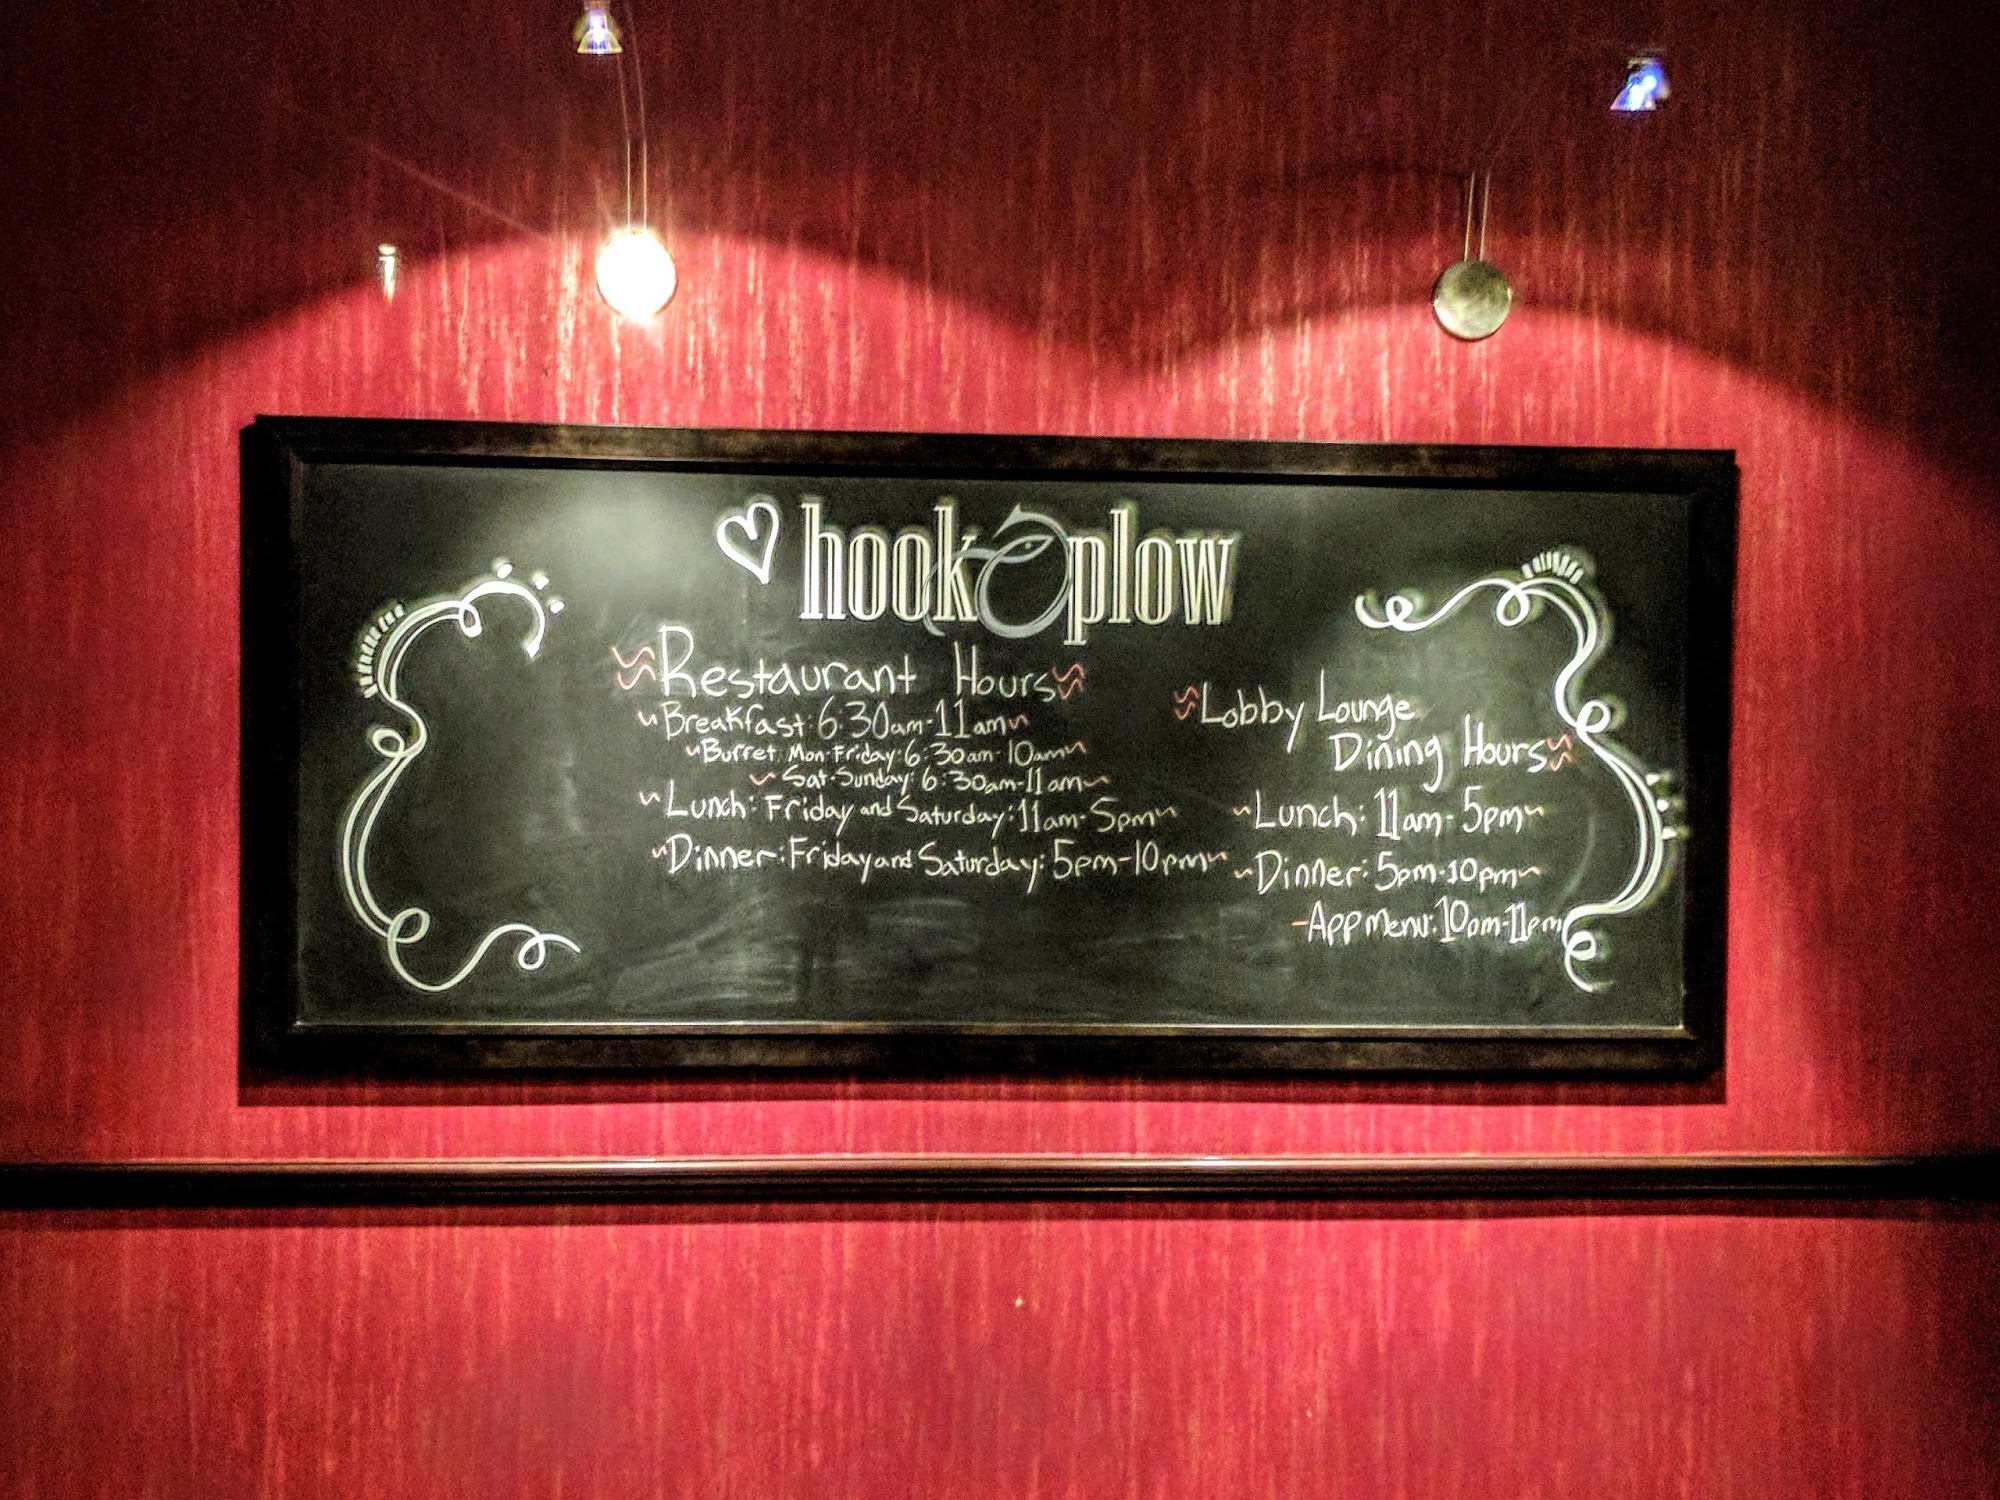 hook & plow
Restaurant Hours
~Breakfast: 6:30am-11am~
~Buffet Mon-Friday: 6:30am-10am~
~Sat-Sunday: 6:30am-11am~
~Lunch: Friday and Saturday: 11am-5pm~
~Dinner: Friday and Saturday: 5pm-10pm~
Lobby Lounge
Dining Hours
~Lunch: 11am-5pm~
~Dinner: 5pm-10pm~
-App Menu: 10am-11pm